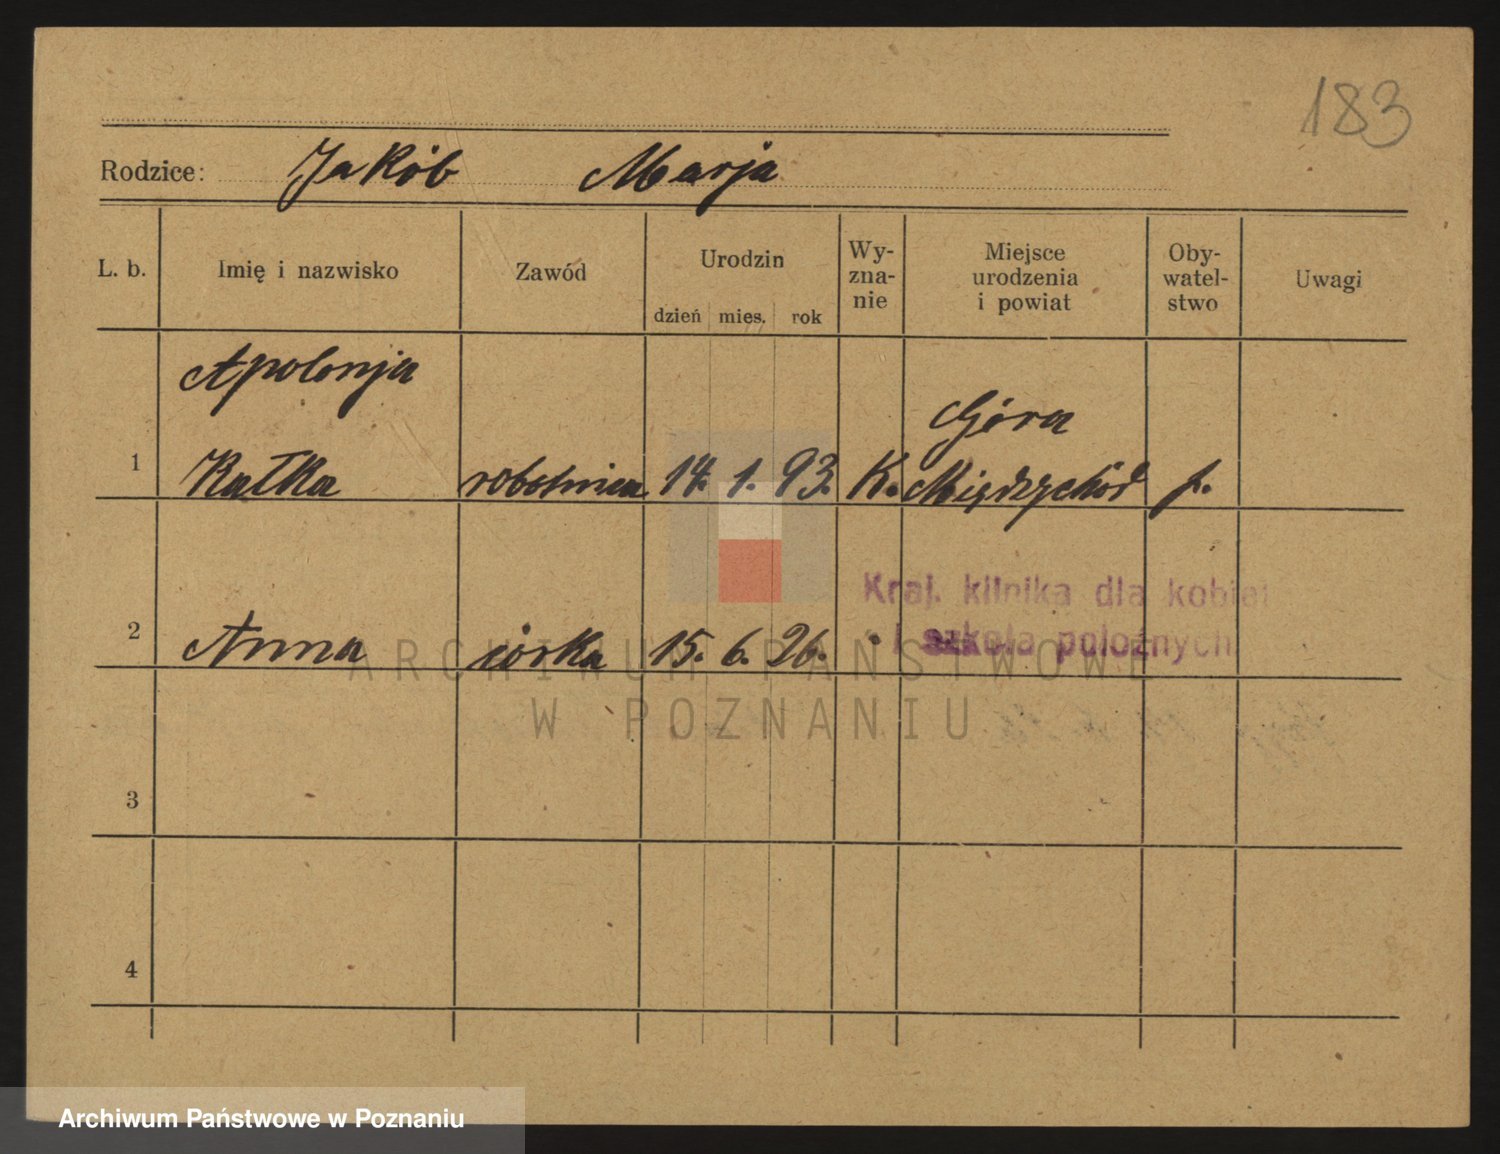 183
Rodzice: Jakób Marja
L. b. Imię i nazwisko Zawód Urodzin dzień mies. rok Wy-zna-nie Miejsce urodzenia i powiat Oby-watel-stwo Uwagi
Apolonja
Góra
1 Kałka robotnica 14. 1. 93. K. Międzychód p.
Kraj. klinika dla kobiet
i szkoła położnych
2 Anna córka 15. 6. 26.
ARCHIWUM PAŃSTWOWE
W POZNANIU
3
4
Archiwum Państwowe w Poznaniu